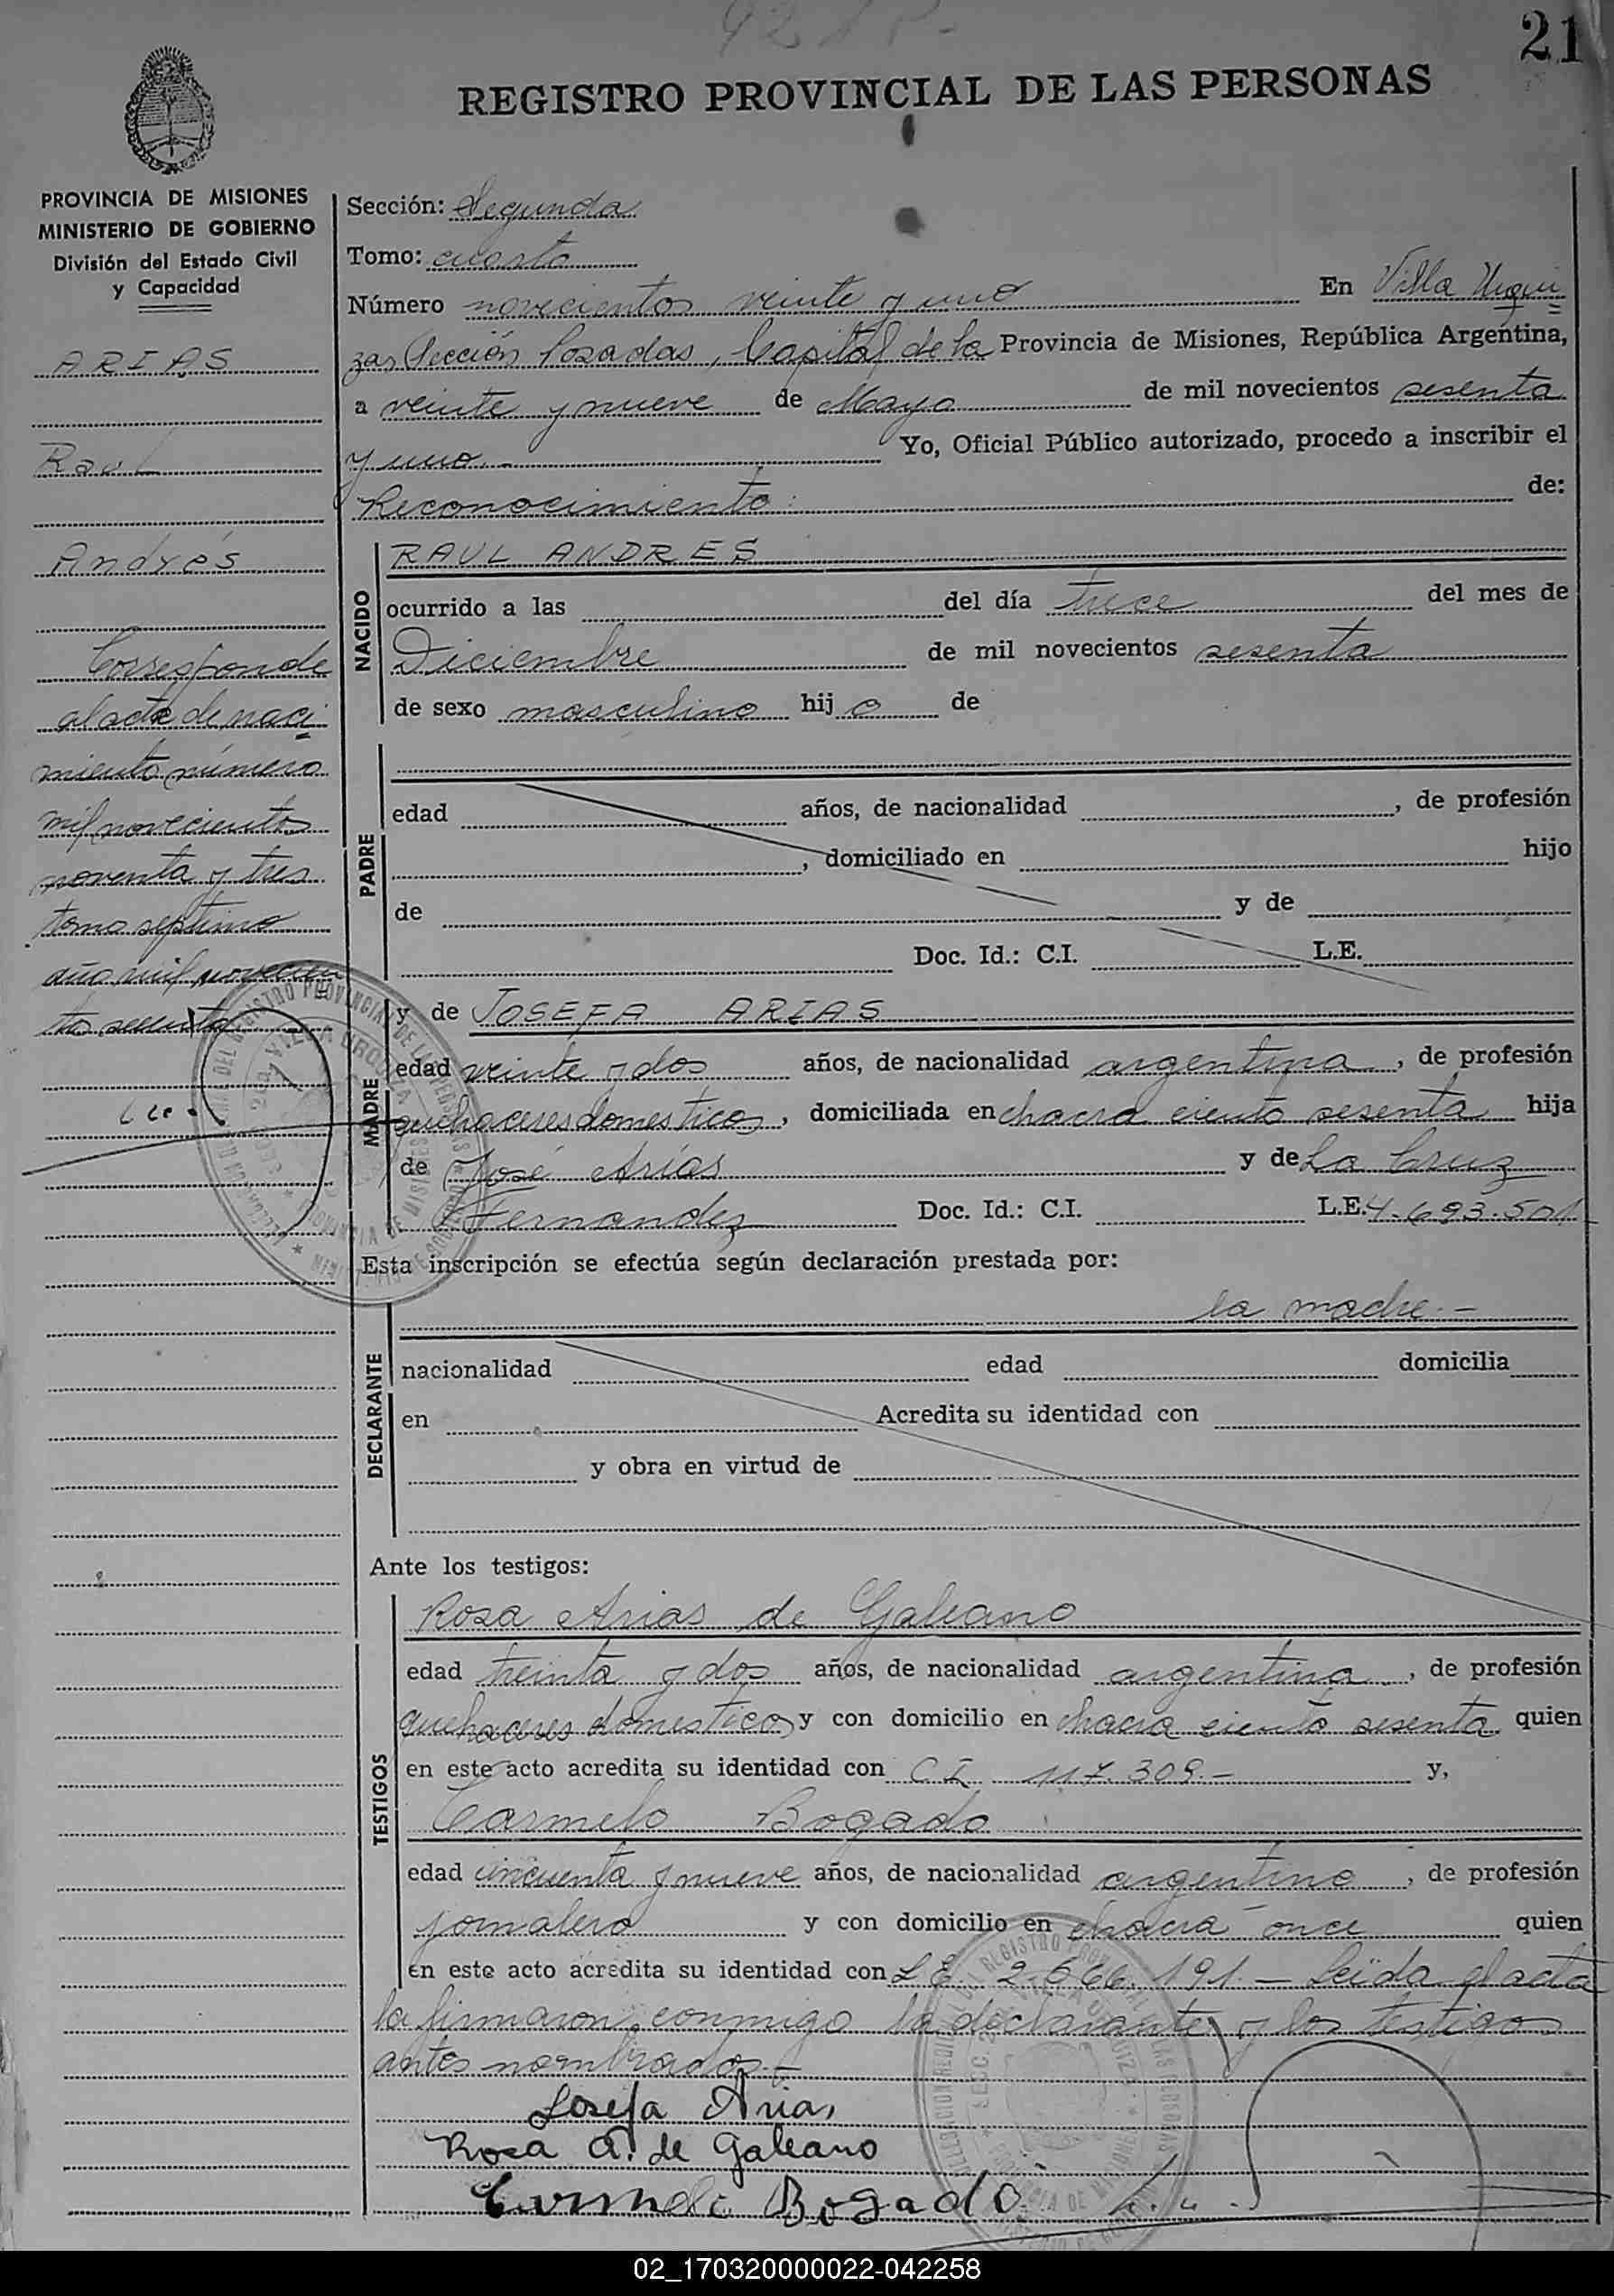 21
REGISTRO PROVINCIAL DE LAS PERSONAS
PROVINCIA DE MISIONES
MINISTERIO DE GOBIERNO
División del Estado Civil
y Capacidad
ARIAS
Raul
Andrés
Corresponde
al acta de naci
miento número
mil novecientos
noventa y tres
tomo septimo
año mil novecien
tos sesenta
Sección: Segunda
Tomo: cuarto
Número novecientos veinte y uno En Villa Urqui
za, Sección Posadas, Capital de la Provincia de Misiones, República Argentina,
a veinte y nueve de Mayo de mil novecientos sesenta
y uno.- Yo, Oficial Público autorizado, procedo a inscribir el
Reconocimiento: de:
NACIDO
RAUL ANDRES
ocurrido a las del día trece del mes de
Diciembre de mil novecientos sesenta
de sexo masculino hijo de
PADRE
edad años, de nacionalidad , de profesión
, domiciliado en hijo
de y de
Doc. Id.: C.I. L.E.
MADRE
y de JOSEFA ARIAS
edad veinte y dos años, de nacionalidad argentina , de profesión
quehaceres domesticos, domiciliada en chacra ciento sesenta hija
de José Arias y de La Cruz
Fernandez Doc. Id.: C.I. L.E. 4.693.501
Esta inscripción se efectúa según declaración prestada por:
la madre.-
DECLARANTE
nacionalidad edad domicilia
en Acredita su identidad con
y obra en virtud de
Ante los testigos:
TESTIGOS
Rosa Arias de Galeano
edad treinta y dos años, de nacionalidad argentina , de profesión
quehaceres domesticos y con domicilio en chacra ciento sesenta quien
en este acto acredita su identidad con C I 117.309.- y,
Carmelo Bogado
edad cincuenta y nueve años, de nacionalidad argentino , de profesión
jornalero y con domicilio en chacra once quien
en este acto acredita su identidad con L E 2.566.191.- Leída el acta
la firmaron conmigo la declarante y los testigos
antes nombrados.-
Josefa Arias
Rosa A. de Galeano
Carmelo Bogado
02_170320000022-042258